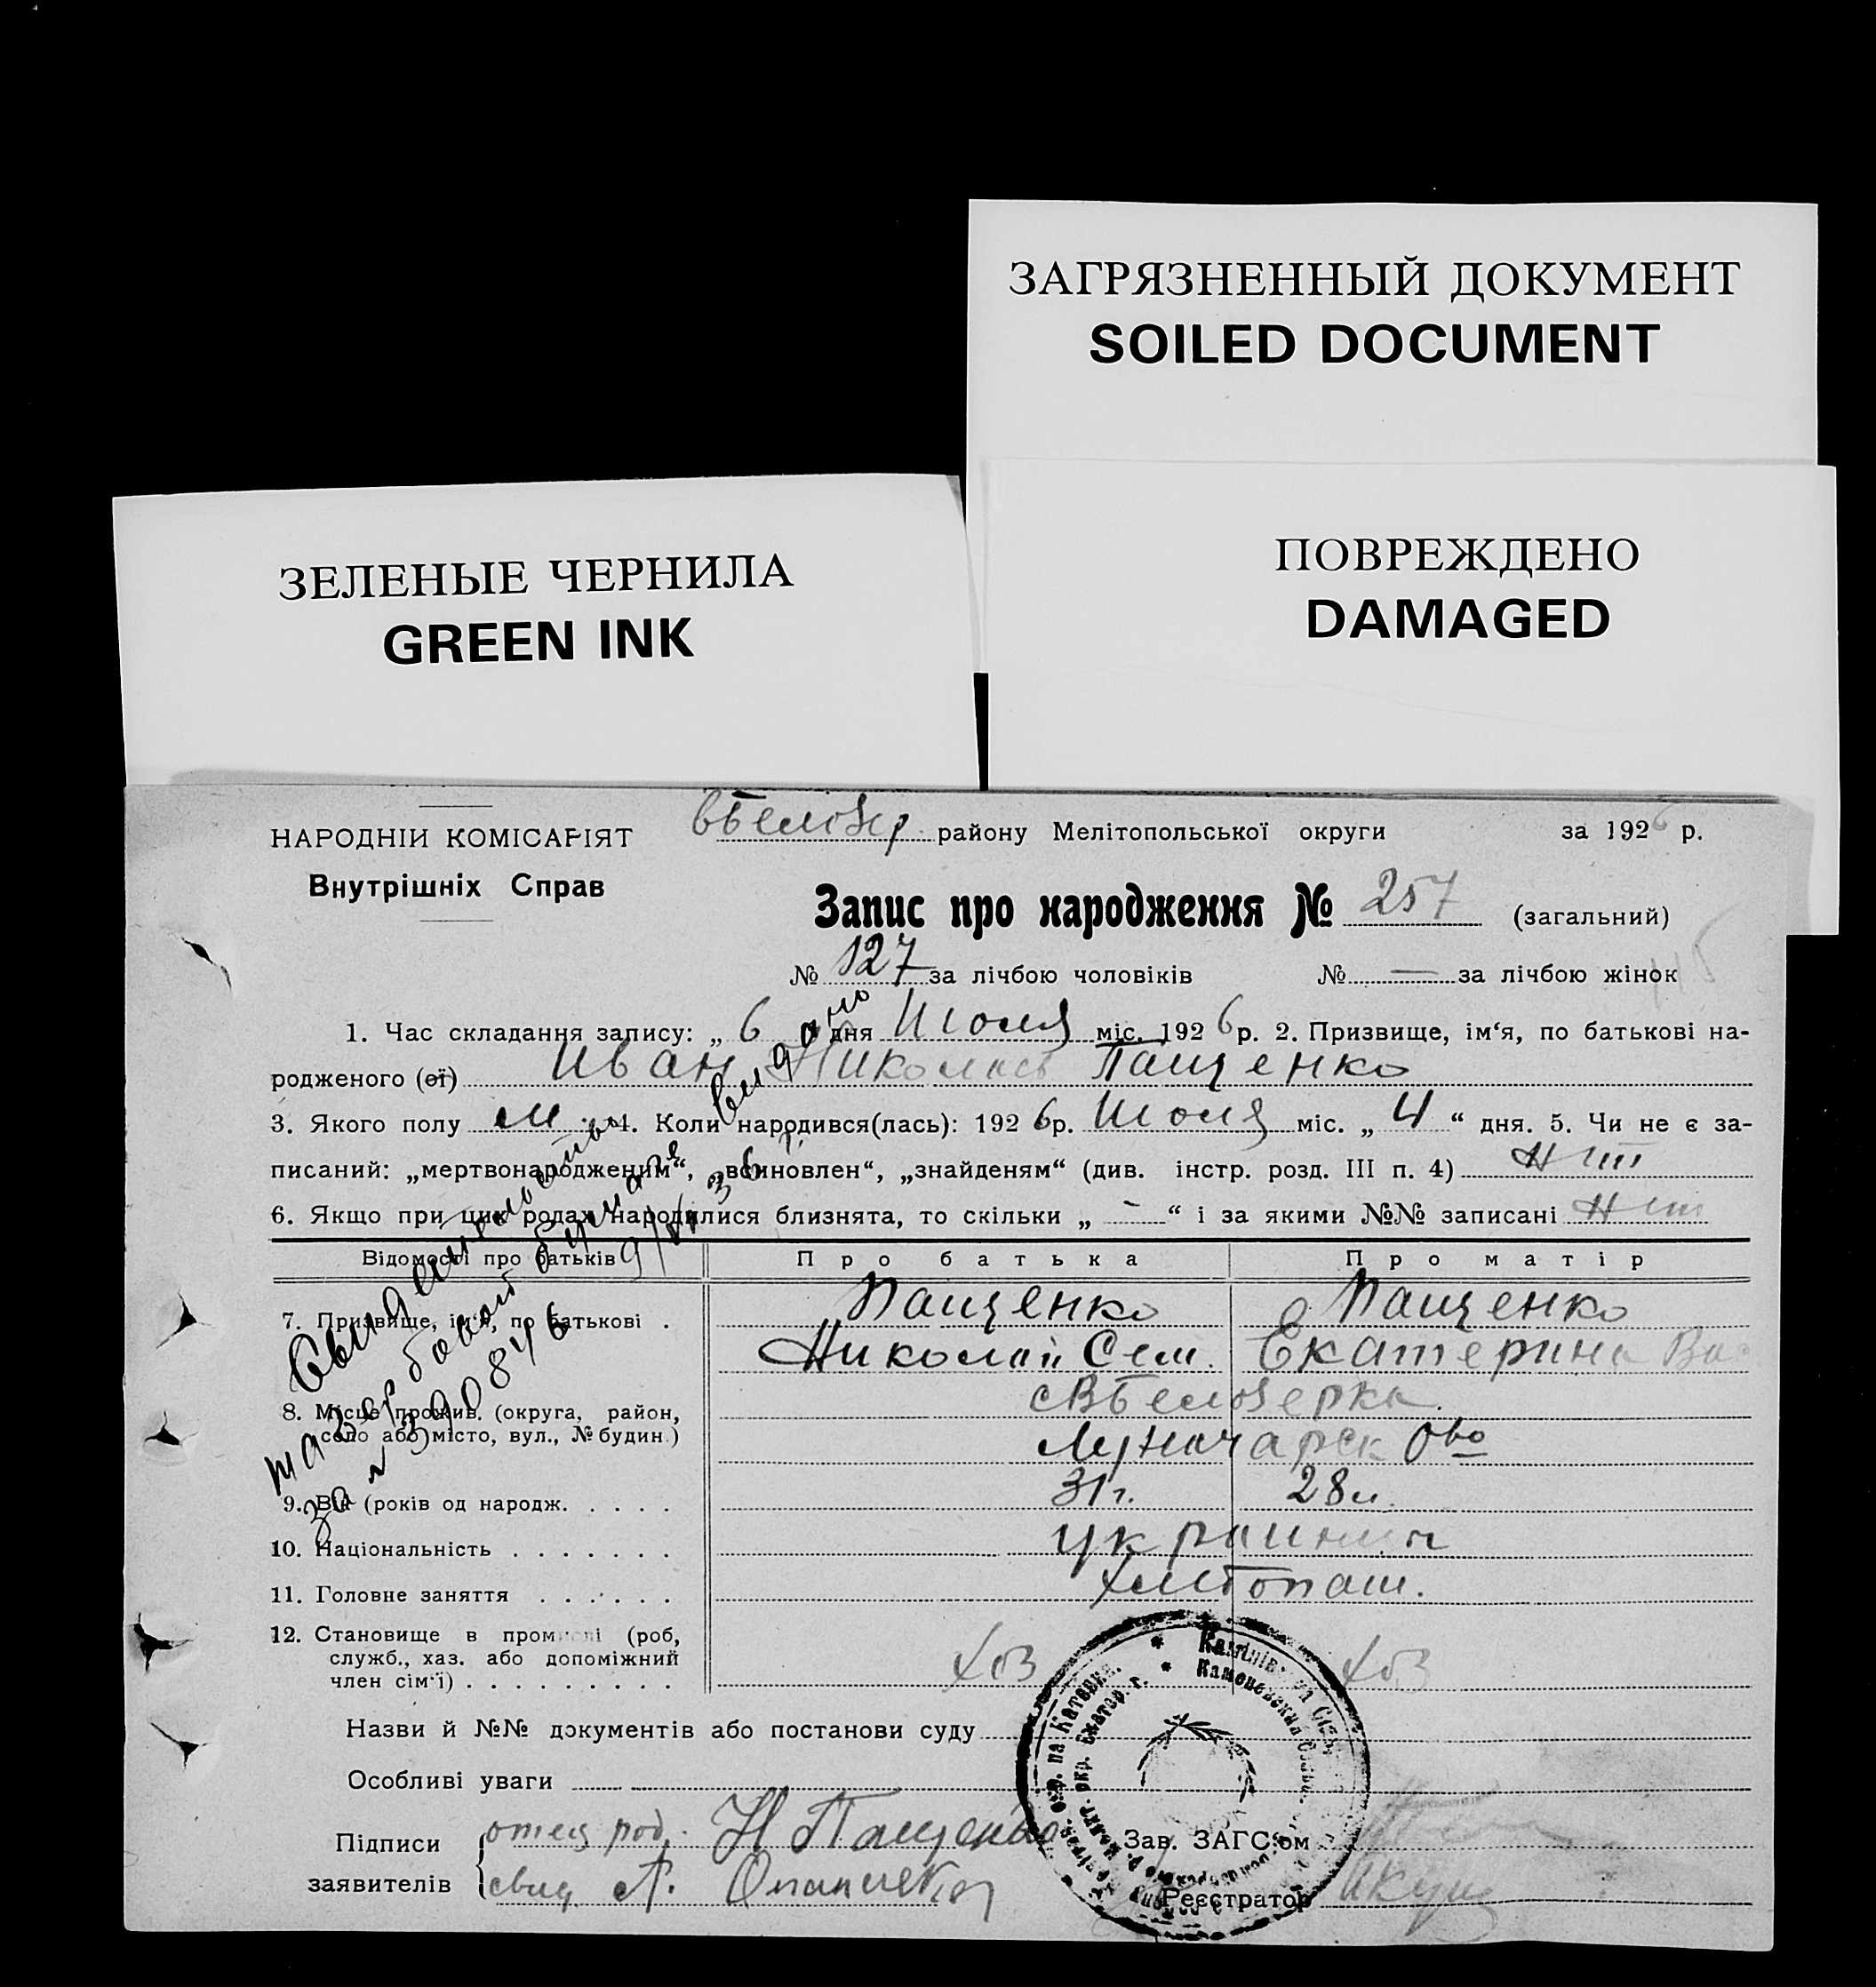 ЗАГРЯЗНЕННЫЙ ДОКУМЕНТ
SOILED DOCUMENT
ЗЕЛЕНЫЕ ЧЕРНИЛА
GREEN INK
ПОВРЕЖДЕНО
DAMAGED
НАРОДНІЙ КОМІСАРІЯТ
Внутрішніх Справ
району Мелітопольської округи за 1926 р.
Запис про народження № 257 (загальний)
№ 127 за лічбою чоловіків № — за лічбою жінок
1. Час складання запису: „ 6 " дня Июля міс. 1926 р. 2. Призвище, ім‘я, по батькові на-
родженого (ої) Иван Никол Пащенко
3. Якого полу м 4. Коли народився(лась): 1926 р. Июля міс. „ 4 “ дня. 5. Чи не є за-
писаний: „мертвонародженим“, „всиновлен“, „знайденям“ (див. інстр. розд. III п. 4) нет
6. Якщо при цих родах народилися близнята, то скільки „ - “ і за якими №№ записані нет
Відомості про батьків
Про батька
Про матір
7. Призвище, ім‘я, по батькові .
Пащенко
Пащенко
Николай Сем.
Екатерина Ва
8. Місце прожив. (округа, район,
село або місто, вул., № будин.)
с Вбелозерка.
Луначарск Ово
9. Вік (років од народж. . . . .
31 г.
28 л.
10. Національність . . . . . . .
украинцы
11. Головне заняття . . . . . .
хлебопаш.
12. Становище в промислі (роб,
служб., хаз. або допоміжний
член сім‘ї) . . . . . . . . .
хоз
хоз
Назви й №№ документів або постанови суду
Особливі уваги
Підписи
заявителів
отец род. Н Пащенко
свид. А.
Зав. ЗАГС‘ом
Реєстратор
Свидетельство видано
на гербовой бумаге
за № 390846 9/VI 36 г.